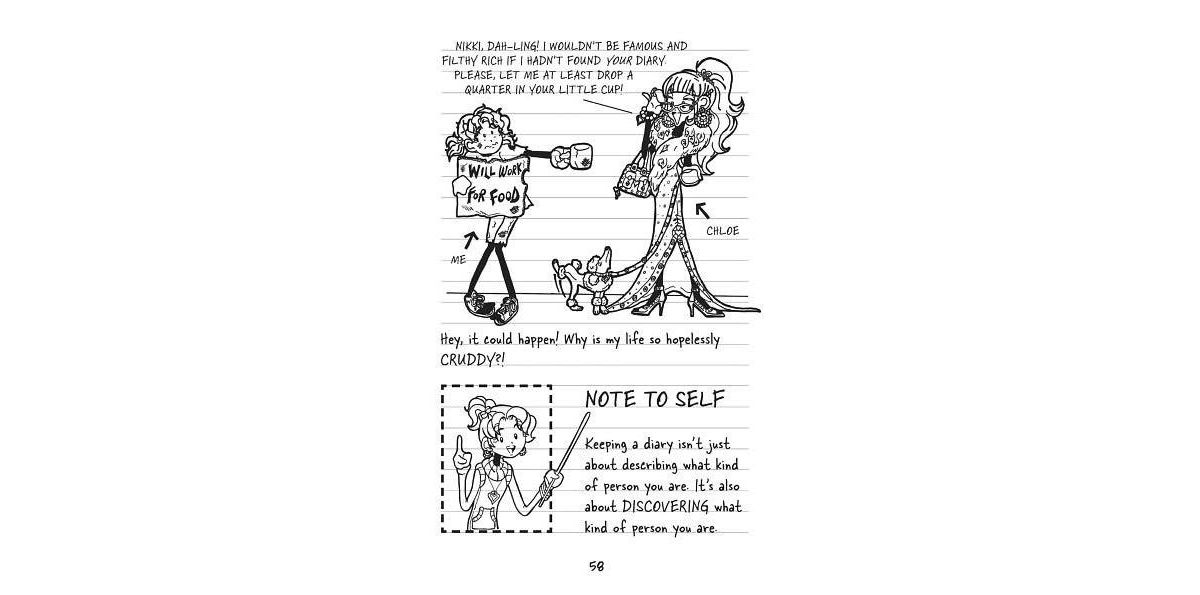 NIKKI, DAH-LING! I WOULDN'T BE FAMOUS AND
FILTHY RICH IF I HADN'T FOUND YOUR DIARY.
PLEASE, LET ME AT LEAST DROP A
QUARTER IN YOUR LITTLE CUP!
WILL WORK
FOR FOOD
CHLOE
ME
Hey, it could happen! Why is my life so hopelessly
CRUDDY?!
NOTE TO SELF
Keeping a diary isn't just
about describing what kind
of person you are. It's also
about DISCOVERING what
kind of person you are.
58